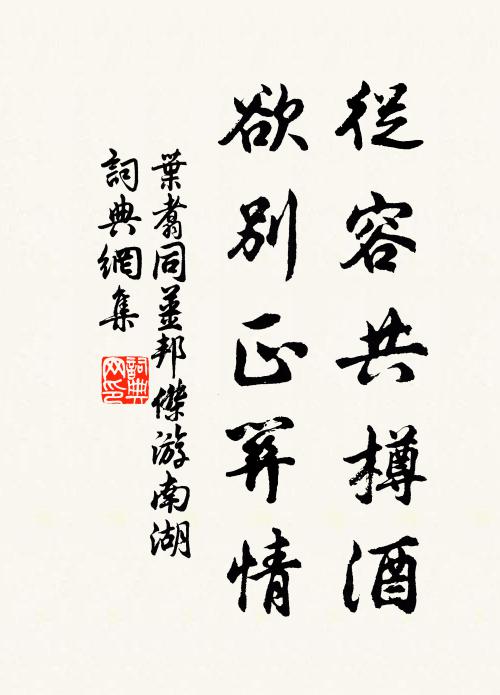 從容共樽酒
欲別正關情
葉翥同姜邦傑游南湖
詞典網集
詞典网印